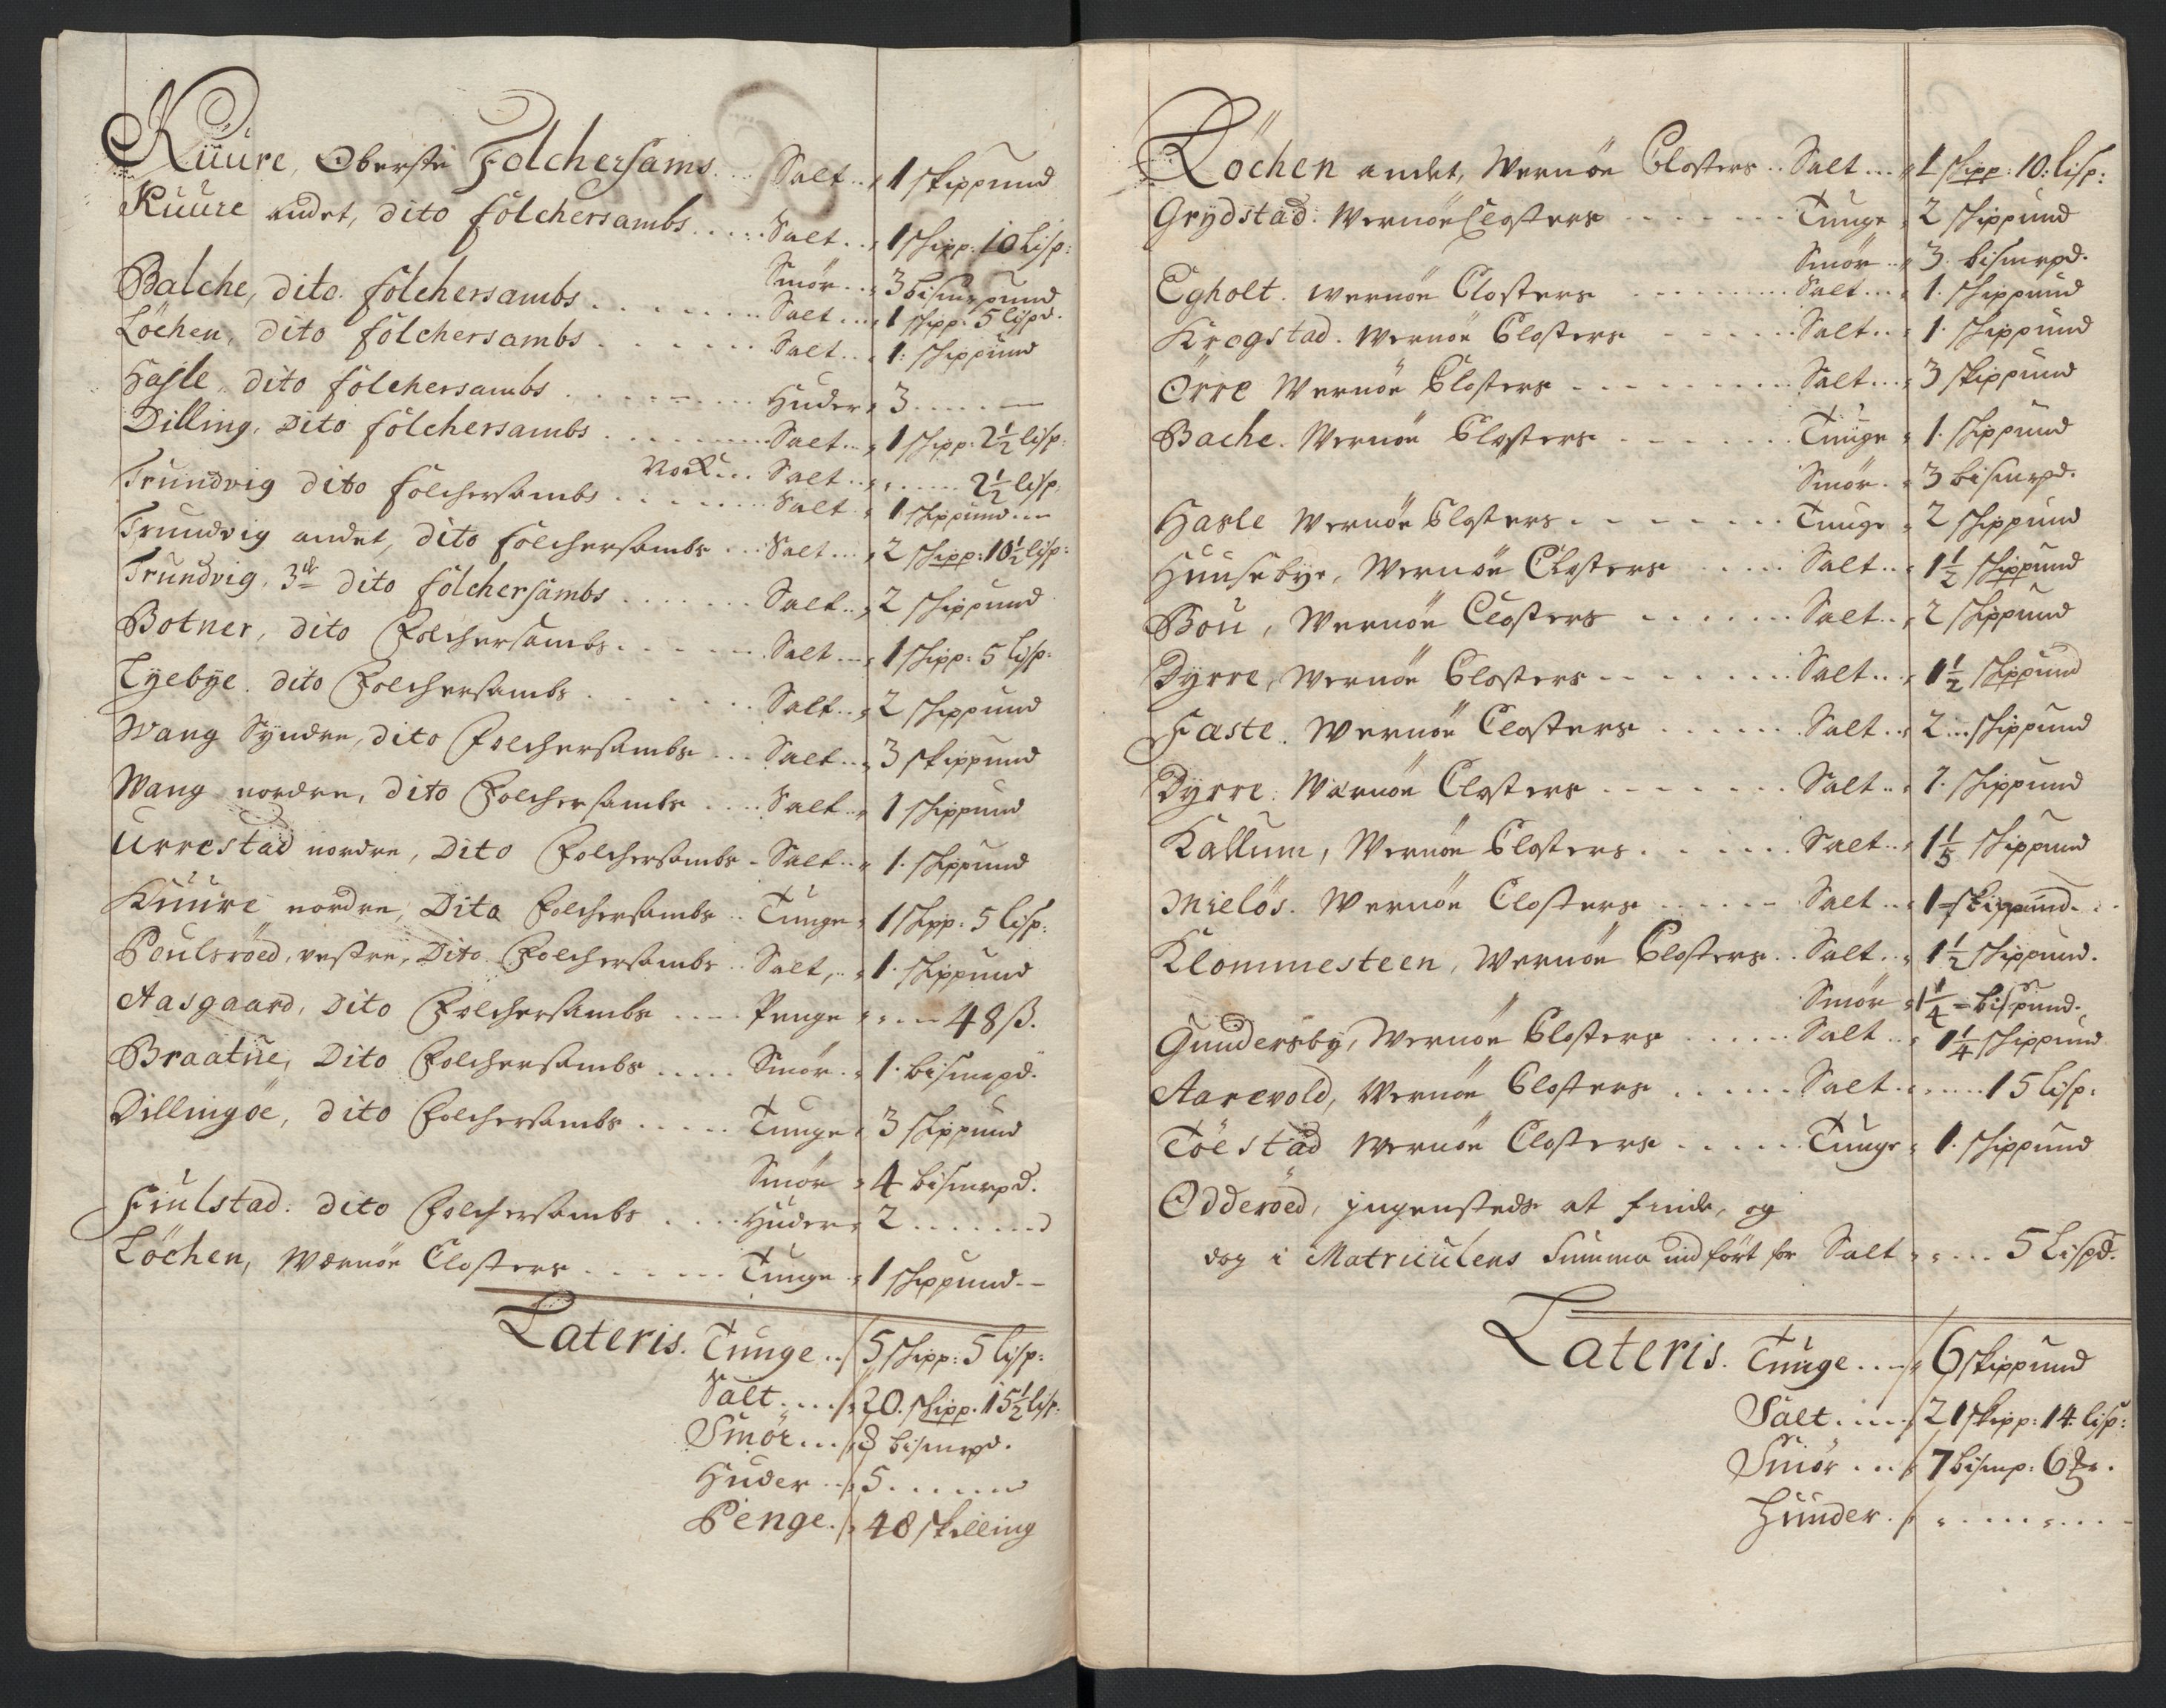 Kuure, Oberste Folchersams... Salt.. 1 skippund
Kuure andet, dito folchersambs..... Salt.. 1 skipp: 10 Lisp:
Smör.. 3 bismerpund
Balche, dito folchersambs....... Salt... 1 skipp: 5 lispd.
Löchen, dito folchersambs....... Salt... 1: skippund
Hasle, dito folchersambs....... Huder 3.....
Dilling, Dito folchersambs....... Salt.. 1 skipp: 2½ lisp:
Salt.. ..... 2½ lisp:
Trundvig dito folchersambs...... Salt.. 1 skippund...
Trundvig andet, dito folchersambs... Salt... 2 skipp: 10½ lisp:
Trundvig, 3de dito folchersambs....... Salt.. 2 skippund
Botner, dito Folchersambs....... Salt... 1 skipp: 5 lisp:
Tyebye. dito Folchersambs....... Salt.. 2 skippund
Wang Syndre, dito Folchersambs... Salt... 3 skippund
Wang nordre, dito Folchersambs.... Salt.. 1 skippund
Urrestad nordre, Dito Folchersambs - Salt.. 1. skippund
Kuure nordre, Dito Folchersambs.. Tunge 1 skpp: 5 lisp:
Poulsröed, vestre, Dito Folchersambs.. Salt,.. 1. skippund
Aasgaard, Dito Folchersambs .... Penge ... 48 ß.
Braatne, Dito Folchersambs ..... Smör.. 1. bismerpd.
Dillingöe, dito Folchersambs ..... Tunge 3 skippund
Smör 4 bismerpd.
Fiulstad: dito Folchersambs .... Huder 2.......
Löchen, Wærnöe Closters....... Tunge 1 skippund--
Lateris. Tunge.. 5 skipp: 5 lisp:
Salt.... 20. skipp. 15½ lisp:
Smör... 8 bismrpd.
Huder.. 5......
Penge. 48 skilling
Löchen andet, Wernöe Closters.. Salt... 1 skipp: 10: lisp:
Grydstad: Wernöe Closters ....... Tunge 2 skippund
Smör.. 3. bismrpd.
Egholt. Wernöe Closters ........ Salt... 1. skippund
Krogstad. Wernöe Closters ....... Salt.. 1. skippund
Örre Wernöe Closters ........ Salt... 3 skippund
Bache. Wernöe Closters ....... Tunge 1. skippund
Smör. 3 bismrpd.
Hasle Wernöe Closters........ Tunge 2 skippund
Huusebye, Wernöe Closters ..... Salt.. 1½ skippund
Bou, Wernöe Closters ....... Salt.. 2 skippund
Dyrre, Wernöe Closters........ Salt... 1½ skippund
Faste. Wernöe Closters ...... Salt.. 2... skippund
Dyrre: Wærnöe Closters ....... Salt.. 1. skippund
Kallum, Wernöe Closters....... Salt.. 1⅕ skippund
Mielös. Wernöe Closters ...... Salt.. 1 skippund...
Klommesteen, Wernöe Closters.. Salt.. 1½ skippund.
Smör 1¼ bispund.
Gundersby, Wernöe Closters ...... Salt.. 1¼ skippund
Aarevold, Wernöe Closters ...... Salt...... 15 lisp:
Töestad Wernöe Closters ...... Tunge 1. skippund
Odderöed, ingensteds at finde, og
dog i Matriculens Summa indfört for Salt .... 5 Lispd.
Lateris. Tunge.... 6 skippund
Salt..... 21 skipp: 14 lisp:
Smör ... 7 bismp: 6
Hunder. ........